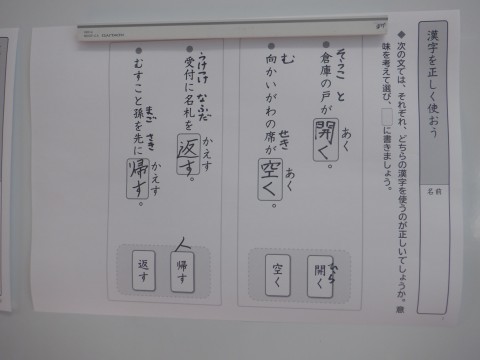 漢字を正しく使おう
名前
◆次の文では、それぞれ、どちらの漢字を使うのが正しいでしょうか。意
味を考えて選び、□に書きましょう。
そうこ と あく
●倉庫の戸が開く。
む せき あく
●向かいがわの席が空く。
ひらく
開く
空く
うけつけ なふだ かえす
●受付に名札を返す。
まご さき かえす
●むすこと孫を先に帰す。
人
帰す
返す